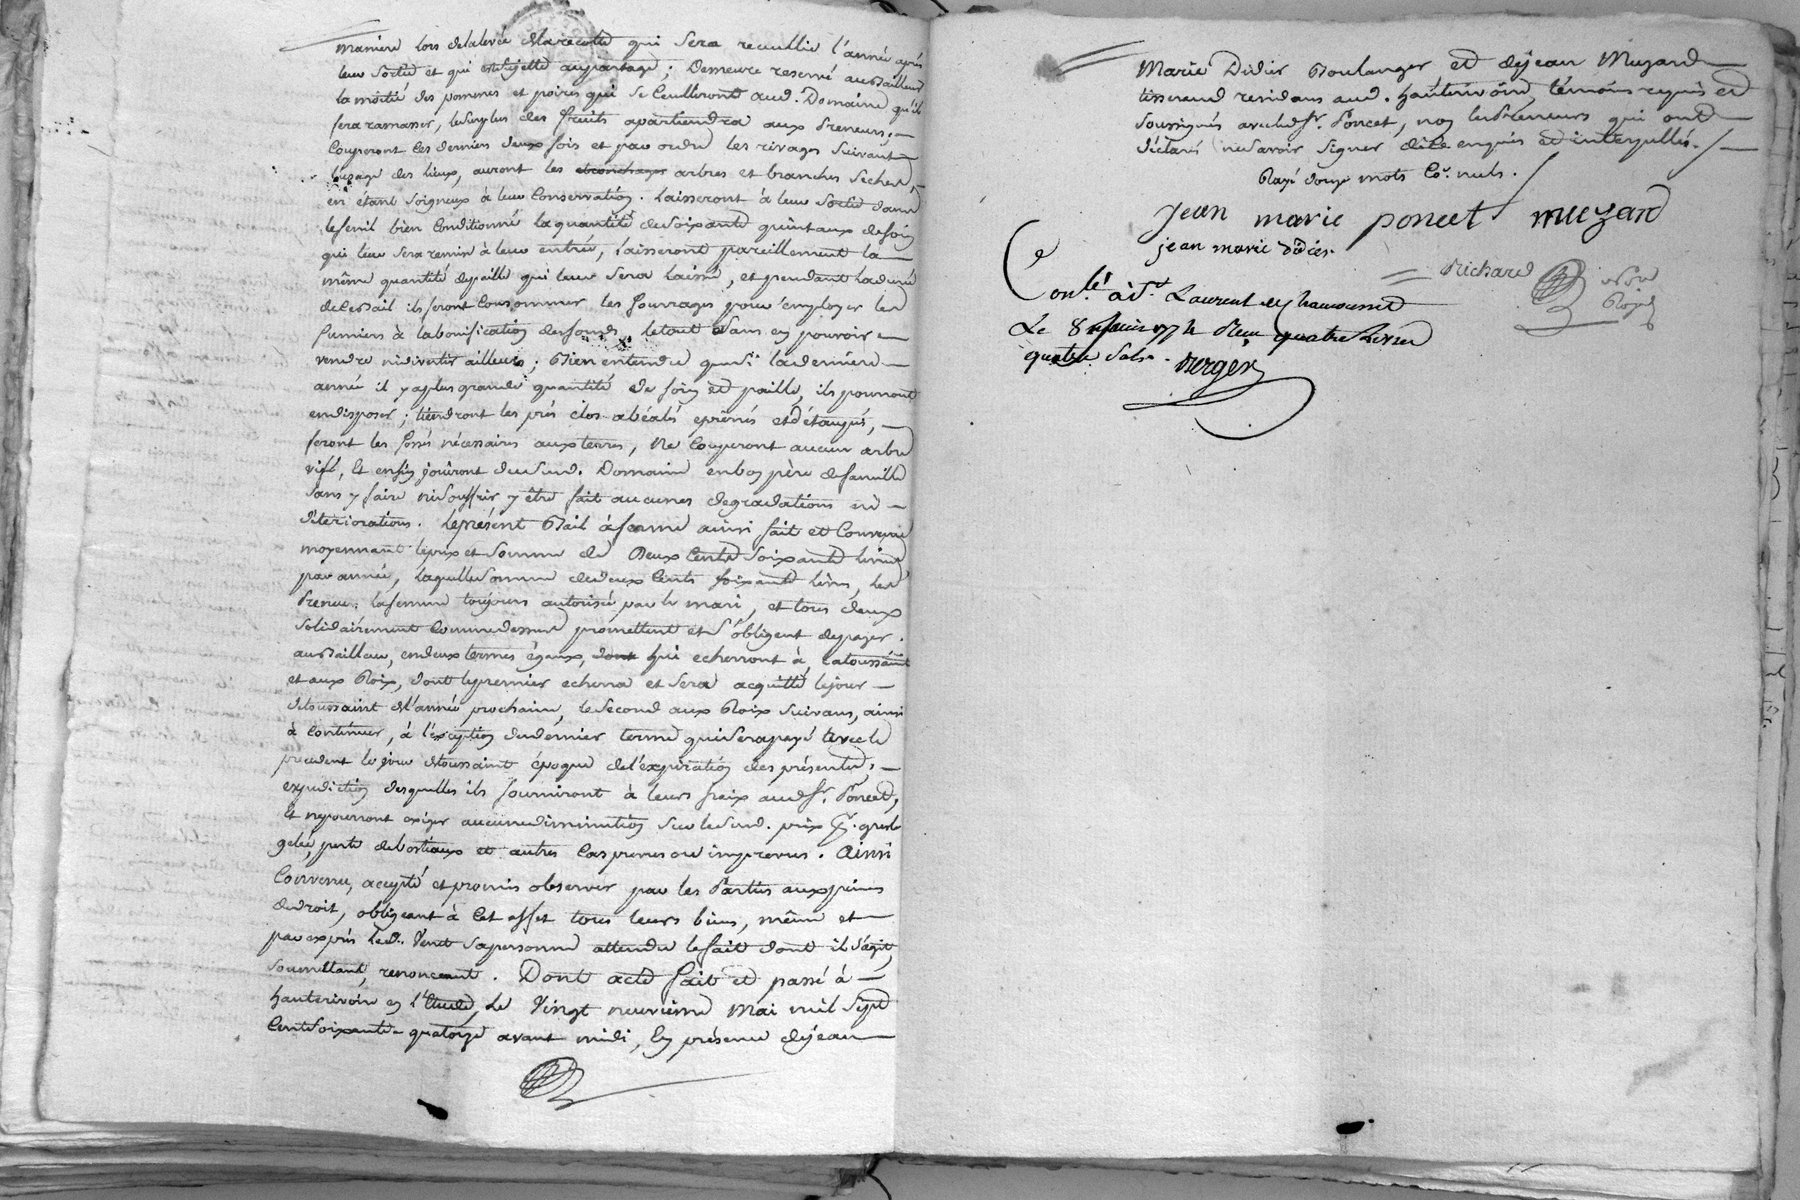 maniere lors de la levée de la recolte qui sera recuellie l'année après
leur sortie et qui est sujette au partage; Demeure reservé au Bailleur
la moitié des pommes et poires qui se ceulliront aud. Domaine qu'il
fera ramasser, le surplus des fruits apartiendra aux Preneurs;
Couperont les derniers deux fois et par ordre les rivages suivant
l'uzage des lieux, auront les arbres et branches seches,
en étant soigneux à leur Conservation. Laisseront à leur sortie dans
le fenil bien Conditionné la quantité de soixante quintaux de foin
qui leur sera remis à leur entrée, Laisseront pareillement la
même quantité de paille qui leur sera laissé, et pendant la durée
de ce Bail ils feront Consommer les fourrages pour employer les
fumiers à la bonification des fonds, le tout sans en pouvoir
vendre ni divertir ailleurs; Bien entendu que si la derniere
année il y a plus grande quantité de foin et paille, ils pourront
en disposer; tiendront les prés clos abéalés et étaupés,
feront les fossés nécessaires aux terres, Ne Couperont aucun arbre
vif, Et enfin joüiront du susd. Domaine en bon père de famille
sans y faire ni souffrir y être fait aucunes degradations ni
déteriorations. Le présent Bail à ferme ainsi fait et Convenu
moyennant le prix et somme de Deux Cents soixante livres
par année, laquelle somme de deux Cents soixante livres, les
Preneurs la femme toujours autorisée par le mari, et tous deux
solidairement Comme dessus promettent et s'obligent de payer
au Bailleur, en deux termes égaux, dont qui echerront à la toussaint
et aux Roix, dont le premier echerra et sera acquitté le jour
de toussaint de l'année prochaine, le second aux Roix suivans, ainsi
à Continuer, à l'éxception du dernier terme qui sera payé avec le
precedent le jour de toussaint époque de l'expiration des présentes,
expedition desquelles ils fourniront à leurs fraix aud. Sr. Poncet,
Et ne pourront exiger aucune diminution sur le susd. prix pr. grele
gelée, perte de bestiaux et autres Cas prevus ou imprevus. Ainsi
Convenu, accepté et promis observer par les Parties aux peines
de droit, obligeant à Cet effet tous leurs biens, même et
par exprès led. Venet sa personne attendu le fait dont il s'agit,
soumettant, renonceant. Dont acte fait et passé à
hauterivoire en l'Etude, Le Vingt neuvieme Mai mil sept
Cent soixante-quatorze avant midi, En présence de jean
Marie Didier Boulanger et de jean Muzard
tisserand residans aud. hauterivoire, témoins requis et
soussignés avec led. Sr. Poncet, non les Preneurs qui ont
déclaré ne savoir signer de ce enquis et interpellés.
Rayé deux mots Co. nuls.
Jean marie poncet muzard
jean marie didier
Richard
Conlé. à St. Laurent de Chamousset
Le 8 juin 1774 Reçu quatre Livres
quatre sols. Berger